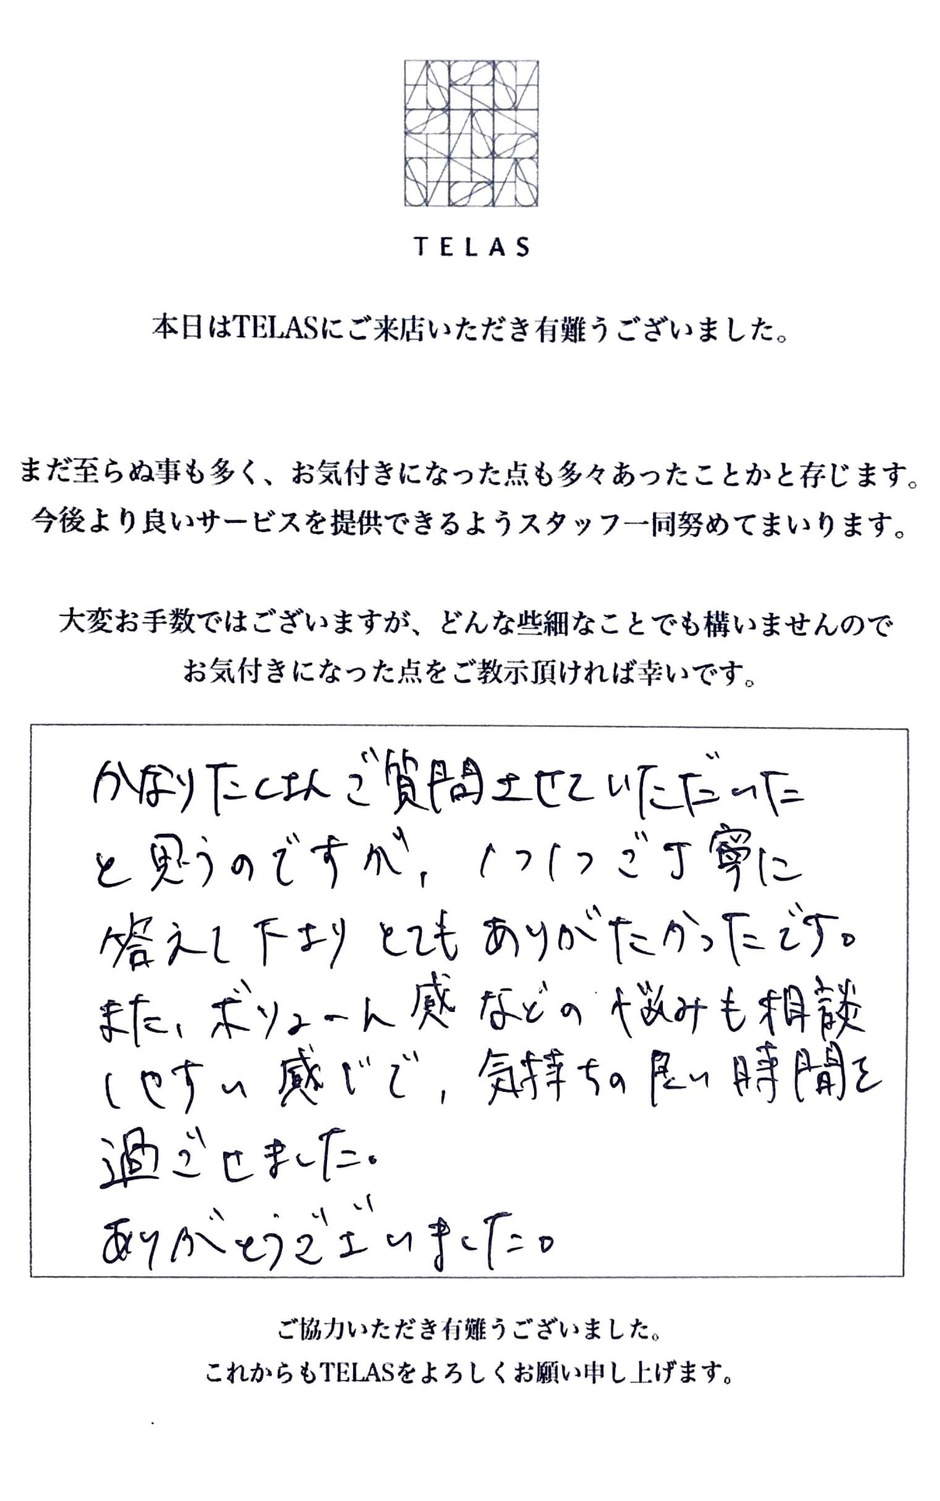 TELAS
本日はTELASにご来店いただき有難うございました。
まだ至らぬ事も多く、お気付きになった点も多々あったことかと存じます。
今後より良いサービスを提供できるようスタッフ一同努めてまいります。
大変お手数ではございますが、どんな些細なことでも構いませんので
お気付きになった点をご教示頂ければ幸いです。
かなりたくさんご質問させていただいた
と思うのですが、1つ1つご丁寧に
答えて下さりとてもありがたかったです。
また、ボリューム感などの悩みも相談
しやすい感じで、気持ちの良い時間を
過ごせました。
ありがとうございました。
ご協力いただき有難うございました。
これからもTELASをよろしくお願い申し上げます。